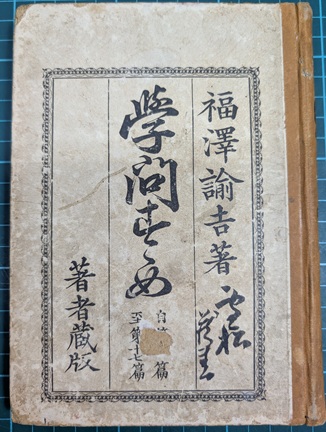 福澤諭吉著
學問すゝめ
自　篇
至第十七篇
著者藏版